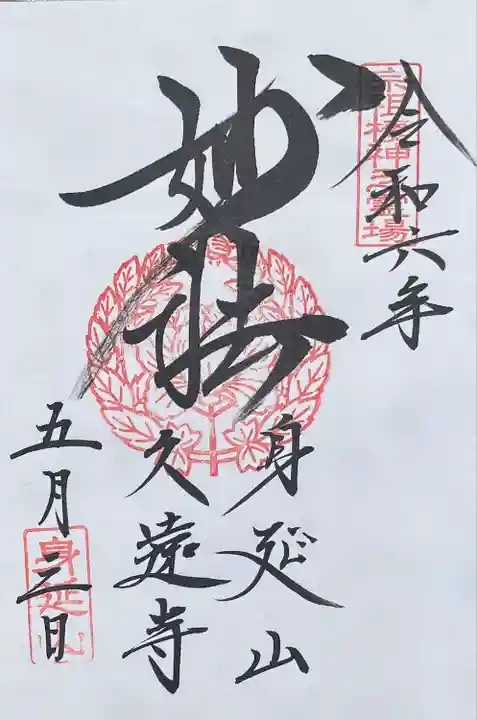 令和六年
宗祖棲神之霊場
妙法
身延山
久遠寺
五月三日
身延山